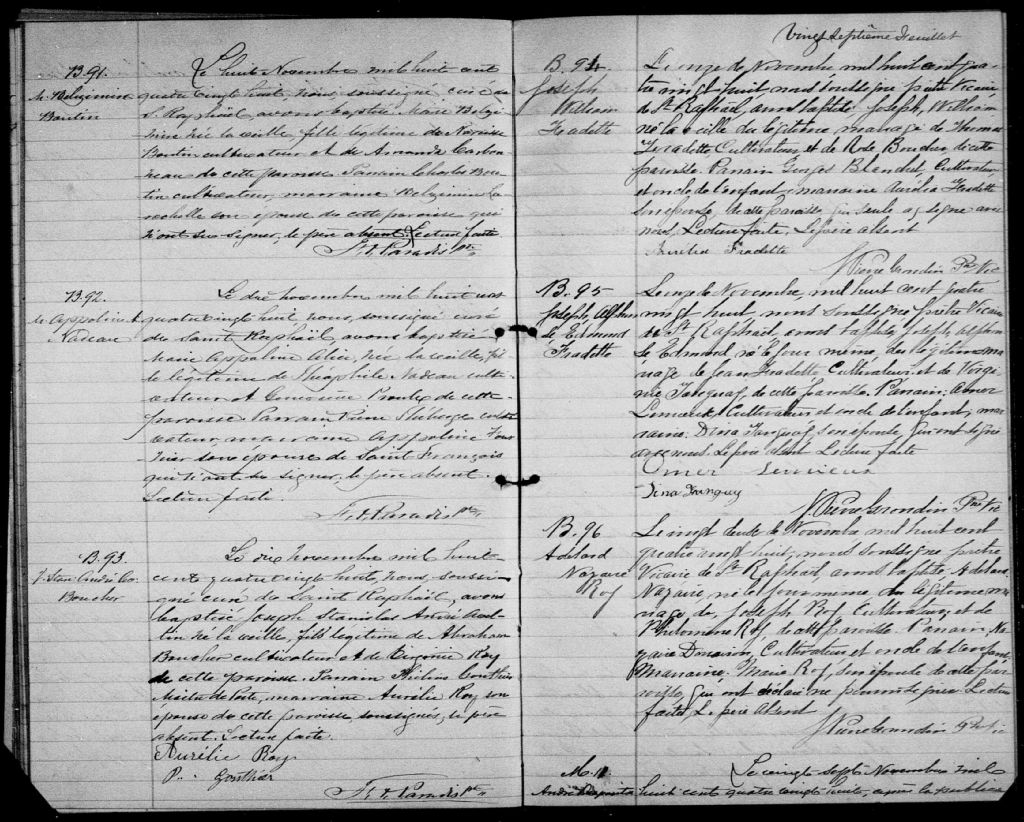 B.91.
M. Belzimire
Boutin
Le huit Novembre mil huit cent
quatre vingt huit, nous, soussigné, curé de
S. Raphaël, avons baptisé Marie Belzi-
mire née la veille, fille légitime de Narcisse
Boutin cultivateur et de Amanda Carbon-
neau de cette paroisse. Parrain Charles Bou-
tin cultivateur, marraine Belzimire La-
rochelle son épouse de cette paroisse qui
n'ont su signer, le père absent. Lecture faite
Paradis Ptre
B.92.
M. Appoline A
Nadeau
Le dix novembre mil huit cent
quatre vingt huit nous, soussigné curé
de Saint Raphaël, avons baptisé
Marie Appoline Alice, née la veille, fil-
le légitime de Théophile Nadeau culti-
vateur et Geneviève de cette
paroisse. Parrain Théberge culti-
vateur, marraine Appoline Four-
nier son épouse de Saint François
qui n'ont su signer, le père absent.
Lecture faite.
Paradis Ptre
B.93.
J. Stan. André
Boucher
Le dix novembre mil huit
cent quatre vingt huit, nous, soussi-
gné curé de Saint Raphaël, avons
baptisé Joseph Stanislas André
né la veille, fils légitime de Abraham
Boucher cultivateur et de Virginie Roy
de cette paroisse. Parrain
marraine Aurélie Roy son
épouse de cette paroisse soussignés, le père
absent. Lecture faite.
Aurélie Roy
P. Gonthier
Paradis Ptre
Vingt septième Feuillet
B. 94
Joseph
William
Fradette
Le onze de Novembre mil huit cent qua-
tre vingt huit nous soussigné prêtre Vicaire
de St Raphaël, avons baptisé Joseph, William
né la veille du légitime mariage de Thomas
Fradette, Cultivateur et de Rose Boucher de cette
paroisse. Parrain Blanchet, Cultivateur
et oncle de l'enfant; marraine Aurélia Fradette
son épouse, de cette paroisse, qui seule a signé avec
nous. Lecture faite. Le père absent
Aurélia Fradette
Pierre Grondin Ptre Vic
B. 95
Joseph, Alphon
se Edmond
Fradette
Le onze de Novembre, mil huit cent quatre
vingt huit, nous soussigné prêtre Vicaire
de St Raphaël, avons baptisé Joseph Alphon
se Edmond né le jour même, du légitime ma-
riage de Jean Fradette Cultivateur et de Virgi-
nie Tanguay, de cette paroisse. Parrain Omer
Lemieux, Cultivateur et oncle de l'enfant, mar-
raine. Dina Tanguay son épouse, qui ont signé
avec nous. Le père absent Lecture faite
Omer Lemieux
Dina Tanguay
Pierre Grondin Ptre Vic
B. 96
Adelard
Nazaire
Roy
Le vingt deux de Novembre mil huit cent
quatre vingt huit, nous soussigné prêtre
Vicaire de St Raphaël, avons baptisé Adelard
Nazaire, né le jour même du légitime ma-
riage de, Joseph Roy Cultivateur, et de
Philomène Roy, de cette paroisse. Parrain, Na-
zaire Cultivateur et oncle de l'enfant
Marraine, Marie Roy, son épouse de cette pa-
roisse, qui ont déclaré ne Lecture
faite. Le père absent
Pierre Grondin Ptre Vic
M. 11
André
Le vingt sept Novembre mil
huit cent quatre vingt huit, après la publica